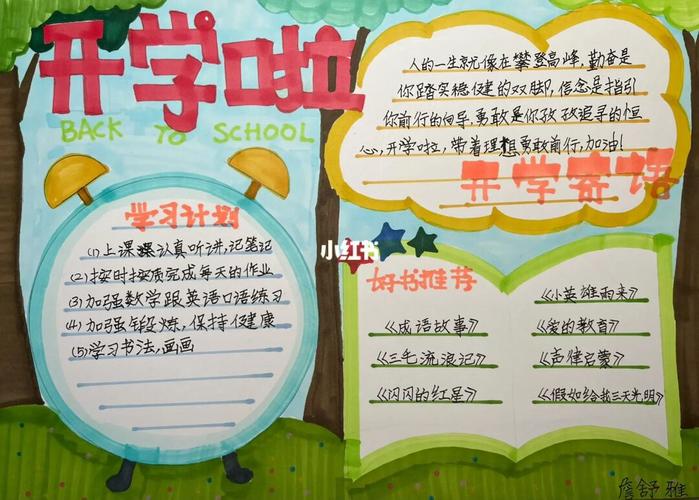 开学啦
BACK TO SCHOOL
人的一生就像在攀登高峰,勤奋是
你踏实稳健的双脚,信念是指引
你前行的向导,勇敢是你孜孜追寻的恒
心,开学啦,带着理想勇敢前行,加油!
开学寄语
学习计划
(1)上课课认真听讲,记笔记
(2)按时按质完成每天的作业
(3)加强数学跟英语口语练习
(4)加强锻炼,保持健康
(5)学习书法,画画
小红书
好书推荐
《成语故事》
《三毛流浪记》
《闪闪的红星》
《小英雄雨来》
《爱的教育》
《声律启蒙》
《假如给我三天光明》
詹舒雅